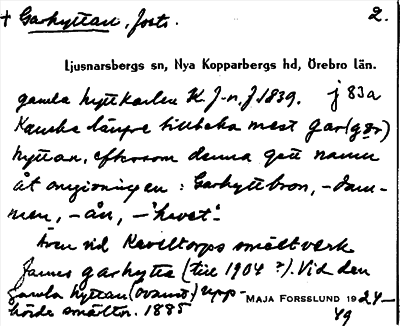 + Garhyttan, forts. 2.
Ljusnarsbergs sn, Nya Kopparbergs hd, Örebro län.
gamla hyttkarlen K. J-n, f. 1839. j 83a
Kanske längre tillbaka mest gar(gær)
hyttan, eftersom denna gett namn
åt omgivningen: Garhyttbron, -dam-
men, -ån, -'huset'.
Även vid Kaveltorps smältverk
fanns garhytta (till 1904?). Vid den
gamla hyttan (ovannt.) upp-
hörde smältn. 1885
MAJA FORSSLUND 1924-
49